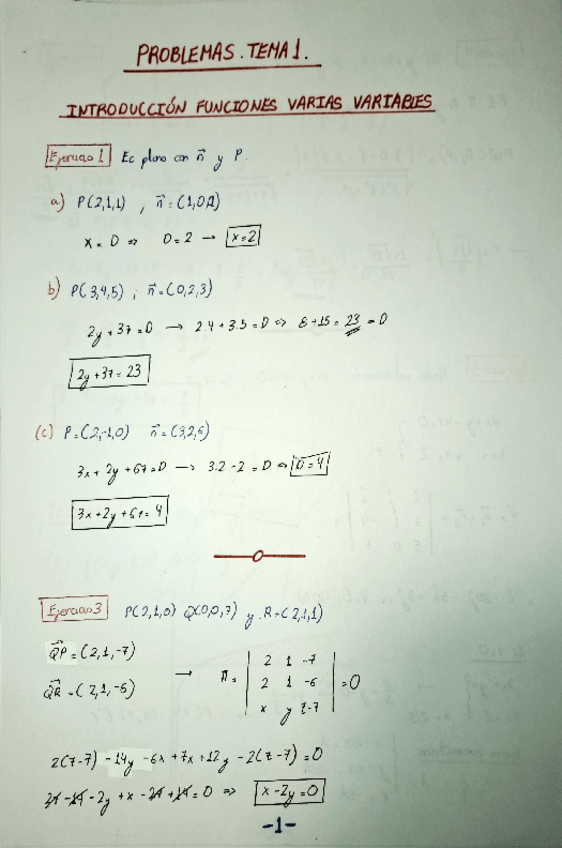 PROBLEMAS. TEMA 1.
INTRODUCCIÓN FUNCIONES VARIAS VARIABLES
Ejercicio 1 Ec plano con n⃗ y P.
a) P(2,1,1) , n⃗ = (1,0,0)
x = D ⇒ D = 2 → x = 2
b) P(3,4,5) ; n⃗ = (0,2,3)
2y + 3z = D → 2.4 + 3.5 = D ⇔ 8 + 15 = 23 = D
2y + 3z = 23
(c) P = (2,-1,0) n⃗ = (3,2,6)
3x + 2y + 6z = D → 3.2 - 2 = D ⇔ D = 4
3x + 2y + 6z = 4
Ejercicio 3 P(2,1,0) Q(0,0,7) y R = (2,1,1)
QP⃗ = (2,1,-7)
QR⃗ = (2,1,-6)
→ π = | 2 1 -7 |
| 2 1 -6 | = 0
| x y z-7 |
2(z-7) - 14y - 6x + 7x + 12y - 2(z-7) = 0
2z - 14 - 2y + x - 2z + 14 = 0 ⇒ x - 2y = 0
-1-